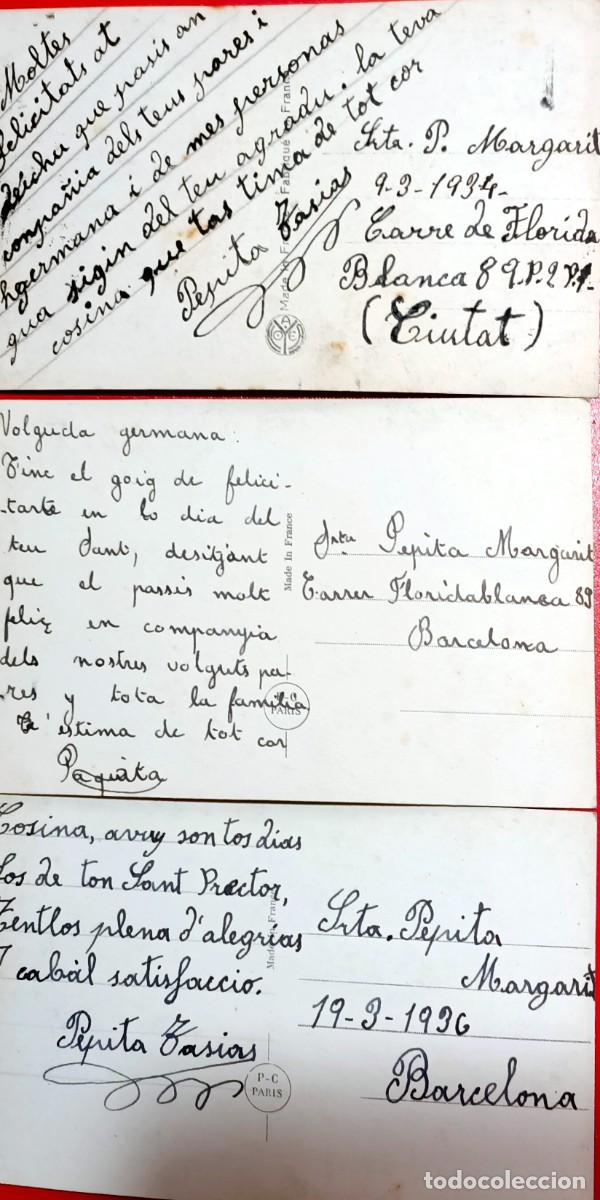 Moltes
felicitats at
deichu que pasis an
compañia dels teus pares i
hgermana i de mes personas
qua sigin del teu agradu. la teva
cosina que tas tima de tot cor
Pepita Tasias
Made in France Fabriqué France
Srta. P. Margarit
9-3-1934-
Carre de Florida
Blanca 89.P.2
(Ciutat)
Volguda germana:
Tinc el goig de felici-
-tarte en lo dia del
teu Sant, desitjant
que el passis molt
feliç en companyia
dels nostres volguts pa-
-res y tota la familia
Te' estima de tot cor
Paquita
Made In France
PARIS
Srta Pepita Margarit
Carrer Floridablanca 89
Barcelona
Cosina, avuy son tos dias
Los de ton Sant Prector,
Tentlos plena d'alegrias
I cabal satisfaccio.
Pepita Tasias
Made in France
P-C
PARIS
Srta. Pepita
Margarit
19-3-1936
Barcelona
todocoleccion.net